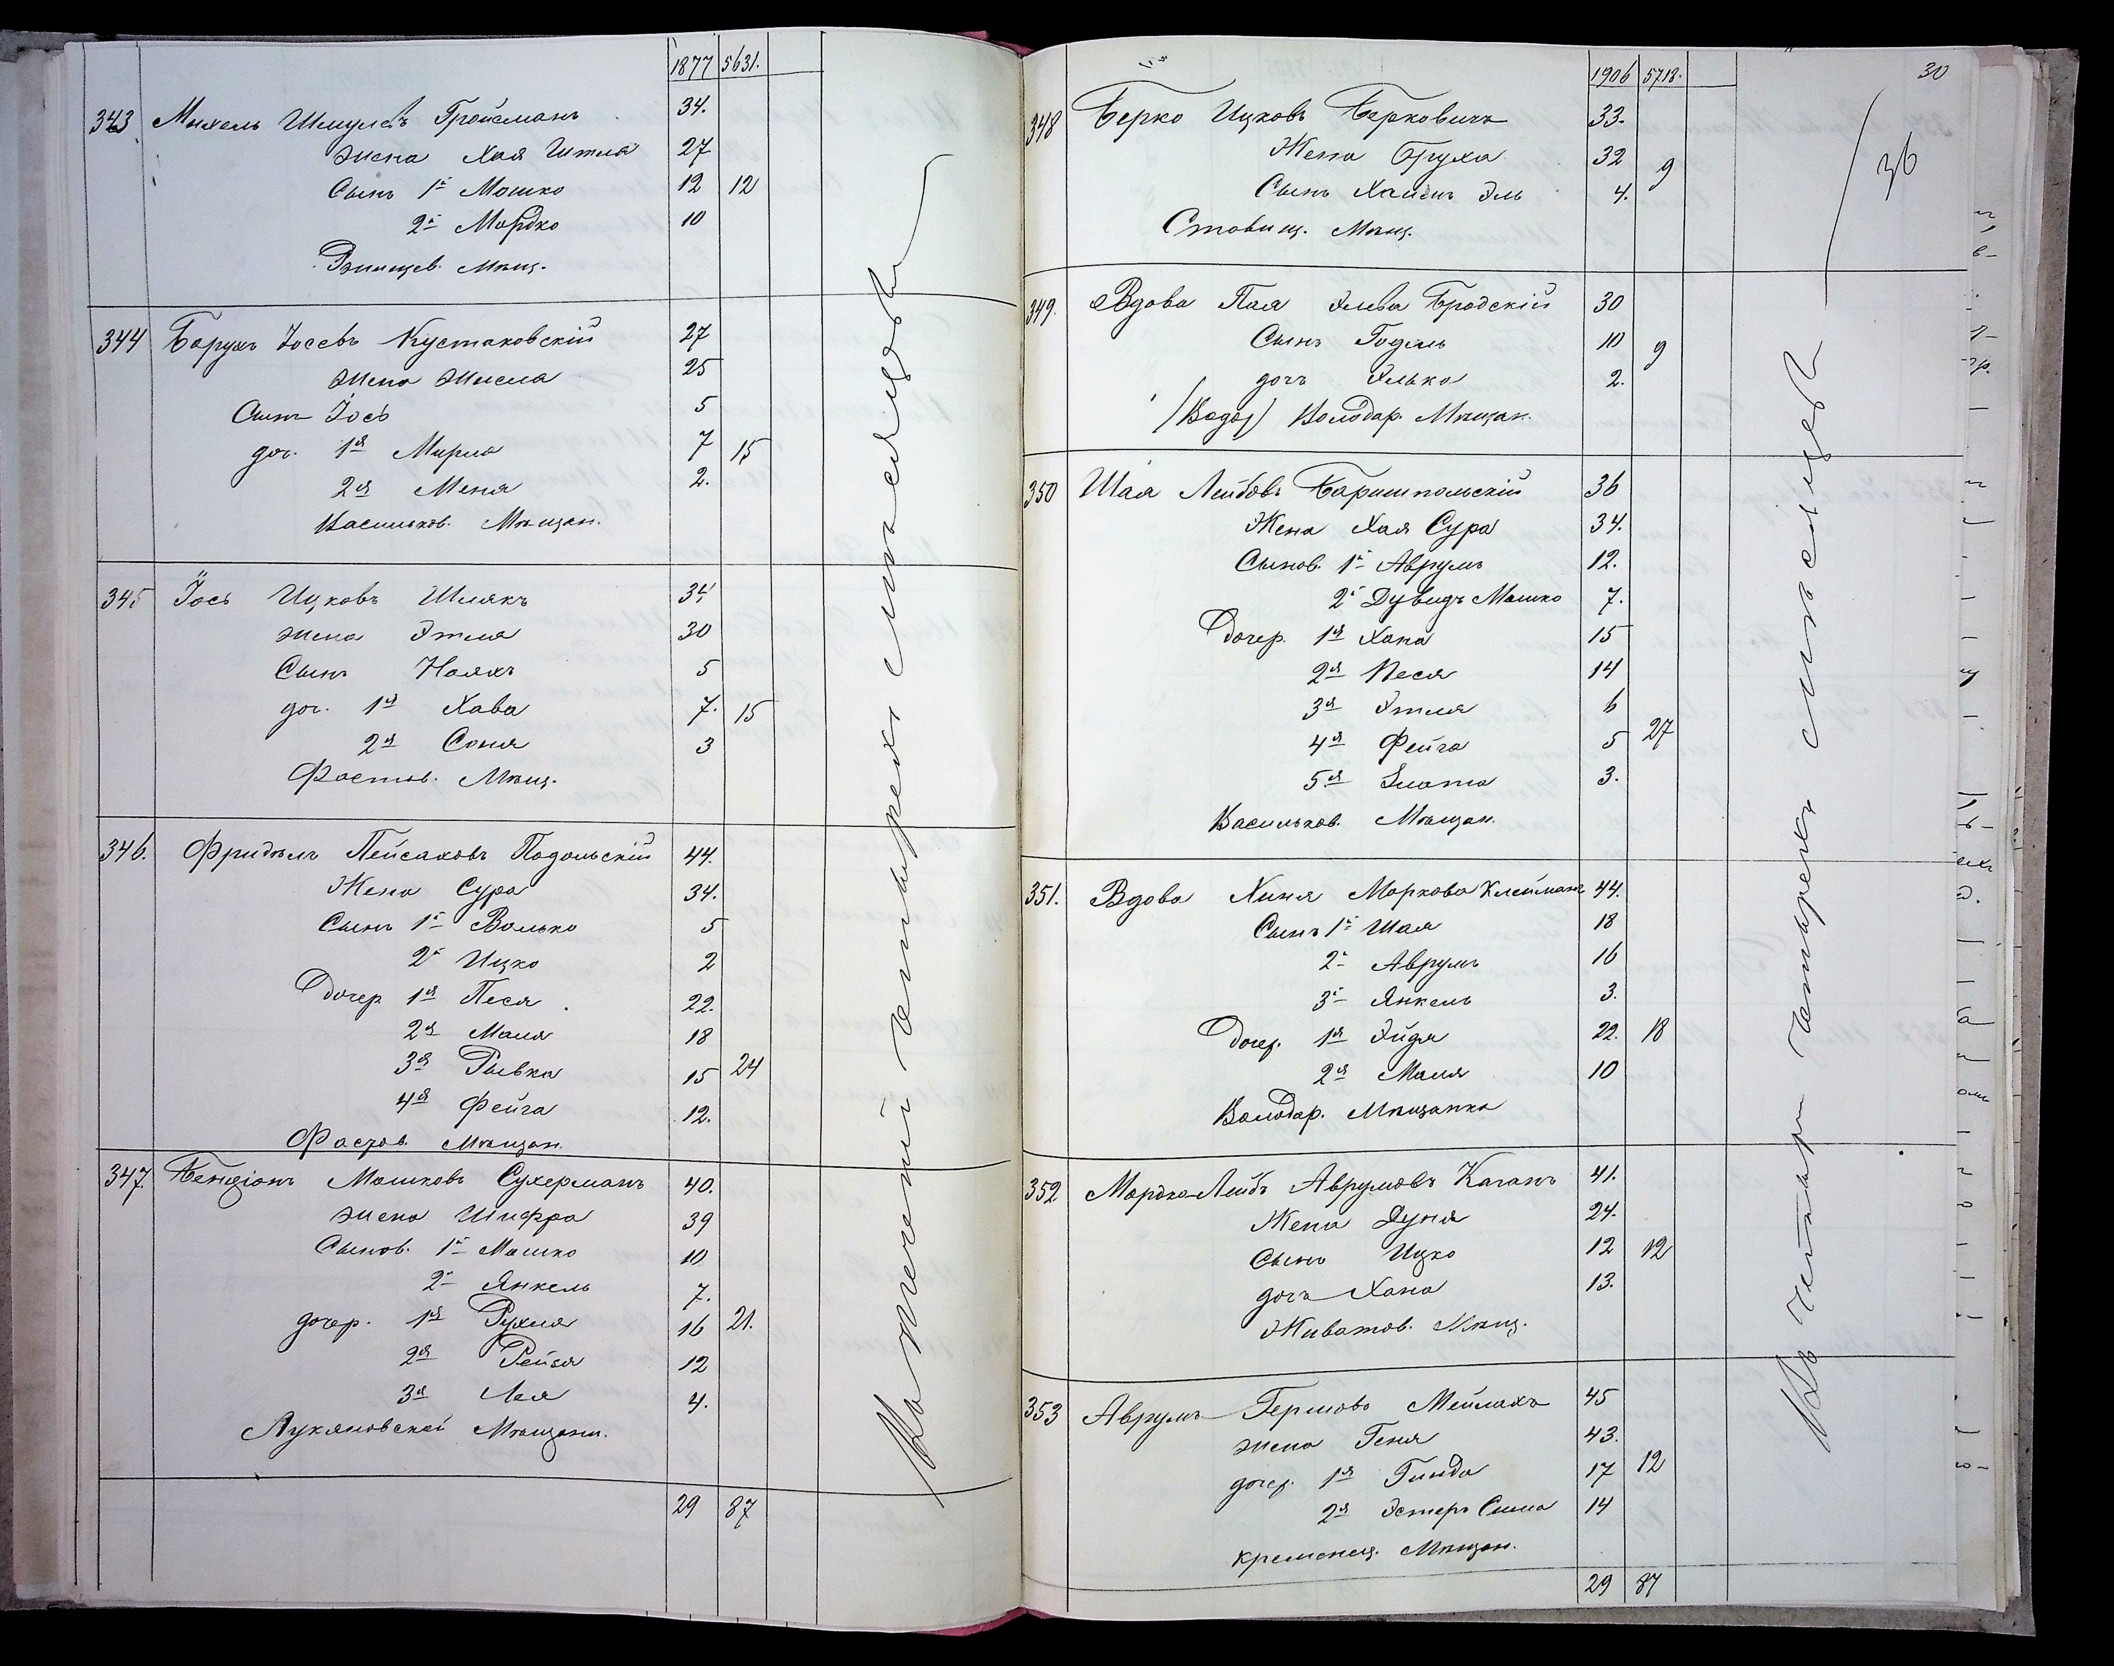 1877 5631.
343 Михель Шмулевъ Гройсманъ 34.
жена Хая Итля 27
Сынъ 1й Мошко 12 12
2й Мордко 10
Мѣщ.
344 Барухъ Іосевъ Кустаковскій 27
жена 25
Сынъ Іось 5
доч. 1я Мирля 7 15
2я Меня 2.
Васильков. Мѣщан.
345 Іось Ицковъ Шлякъ 34
жена Этля 30
Сынъ Нояхъ 5
доч. 1я Хава 7. 15
2я Соня 3
Фастов. Мѣщ.
346. Фридель Пейсаховъ Подольскій 44.
Жена Сура 34.
Сынъ 1й Волько 5
2й Ицко 2
Дочер 1я Песя 22.
2я Маля 18
3я Рывка 15 24
4я Фейга 12.
Фастов. Мѣщан.
347. Бенціонъ Мошковъ Сухерманъ 40.
жена Шифра 39
Сынов. 1й Мошко 10
2й Янкель 7.
дочер. 1я Рухля 16 21.
2я Рейзя 12
3я Лея 4.
Лукяновскій Мѣщани.
29 87
На теченій четырехъ мѣсяцовъ
1906 5718. 30
348 Берко Ицковъ Берковичъ 33.
Жена Бруха 32 9
Сынъ Хаимъ Эль 4.
Ставищ. Мѣщ.
36
349. Вдова Пая Элева Бродскій 30
Сынъ Годель 10 9
дочъ Элька 2.
Володар. Мѣщан.
350 Шая Лейбовъ Баришпольскій 36
Жена Хая Сура 34.
Сынов. 1й Аврумъ 12.
2й Дувидъ Мошко 7.
Дочер. 1я Хана 15
2я Песя 14
3я Этля 6
4я Фейга 5 27
5я Злата 3.
Васильков. Мѣщан.
351. Вдова Хиня Маркова Клейманъ 44.
Сынъ 1й Шая 18
2й Аврумъ 16
3й Янкель 3.
Дочер. 1я Эйдя 22. 18
2я Маля 10
Володар. Мѣщанка
352 Мордко-Лейбъ Аврумовъ Каганъ 41.
Жена Дуня 24.
Сынъ Ицко 12 12
дочъ Хана 13.
Животов. Мѣщ.
353 Аврумъ Гершовъ Мейлахъ 45
жена Геня 43.
дочер. 1я Гинда 17 12
2я Эстеръ Сима 14
Кременец. Мѣщан.
29 87
четырехъ мѣсяцевъ